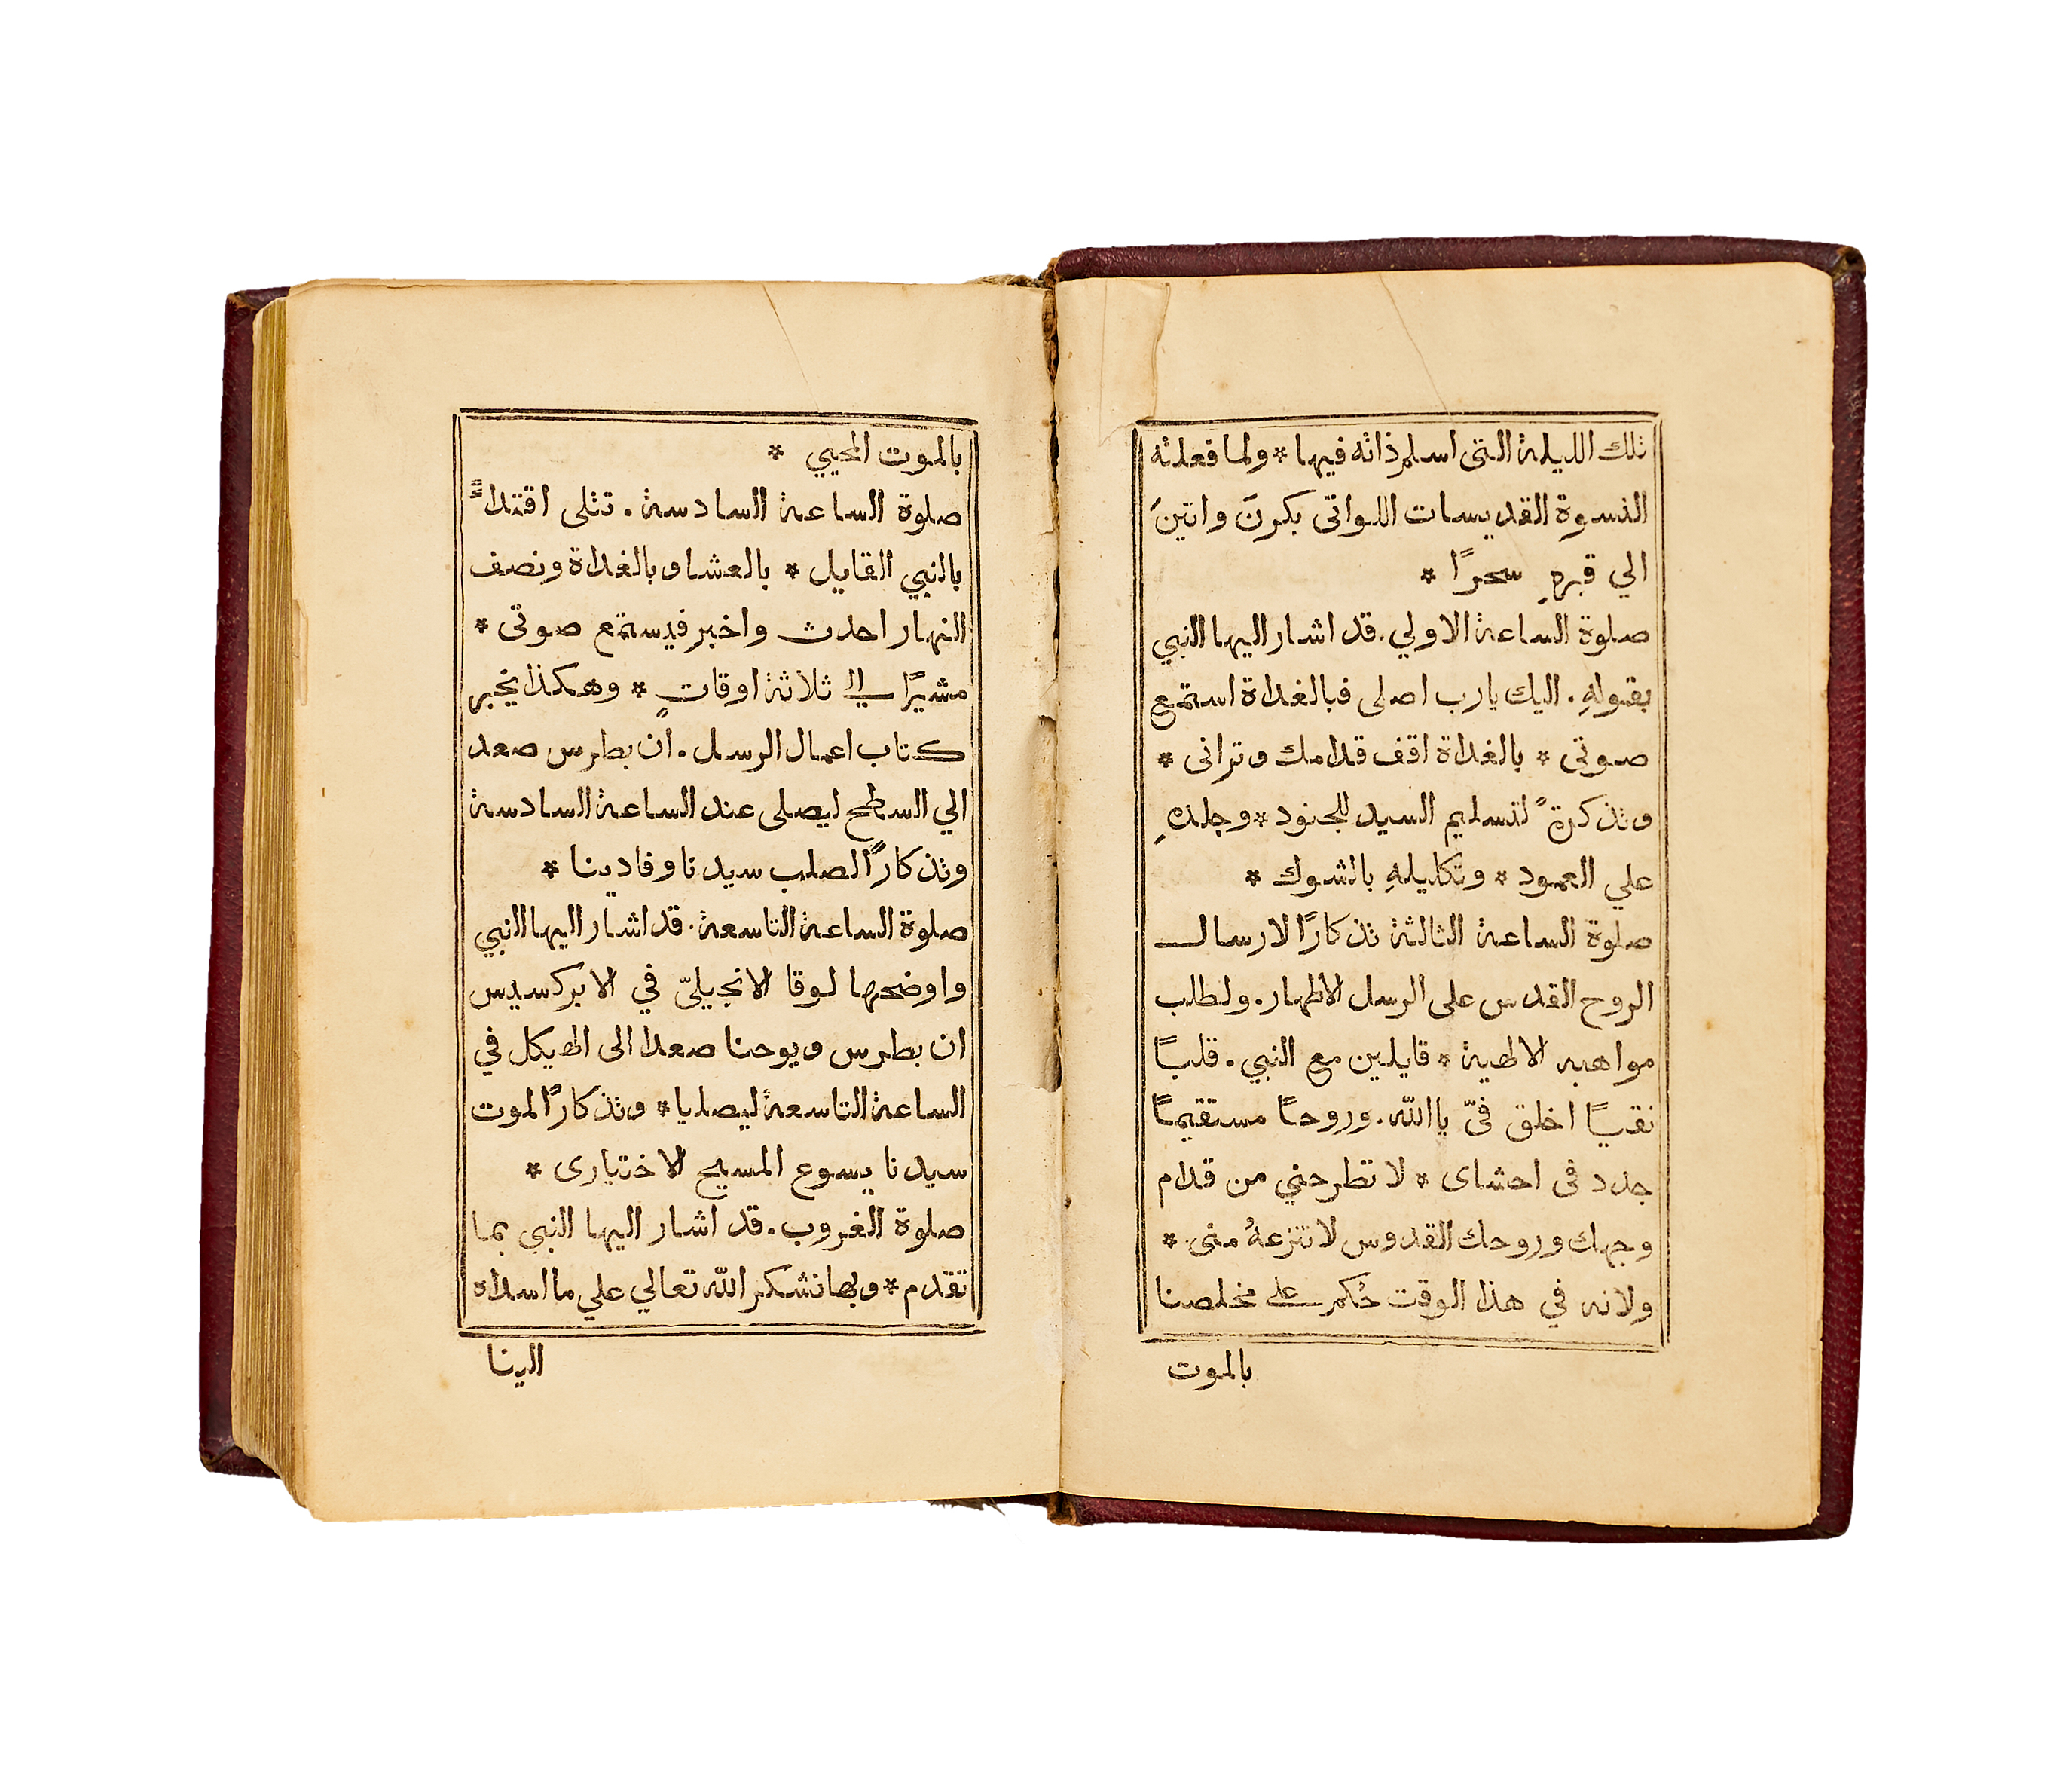 تلك الليلة التى اسلم ذاته فيها * ولما فعلته
النسوة القديسات اللواتى بكرنَ واتينَ
الي قبرهِ سحرًا *
صلوة الساعة الاولي . قد اشار اليها النبي
بقولهِ . اليك يارب اصلى فبالغداة استمع
صوتى * بالغداة اقف قدامك وترانى *
وتذكرةً لتسليم السيد للجنود * وجلدهِ
علي العمود * وتكليلهِ بالشوك *
صلوة الساعة الثالثة تذكارًا لارسال
الروح القدس على الرسل الاطهار . ولطلب
مواهبه الالهية * قايلين مع النبي . قلبًا
نقيًا اخلق فىّ يا الله . وروحًا مستقيمًا
جدد فى احشاى * لا تطرحني من قدام
وجهك وروحك القدوس لا تنزعهُ منى *
ولانه في هذا الوقت حُكم على مخلصنا
بالموت
بالموت المحيي *
صلوة الساعة السادسة . تتلى اقتداءً
بالنبي القايل * بالعشا وبالغداة ونصف
النهار احدث واخبر فيستمع صوتى *
مشيرًا الي ثلاثة اوقاتٍ * وهكذا يخبر
كتاب اعمال الرسل . ان بطرس صعد
الي السطح ليصلى عند الساعة السادسة
وتذكارًا لصلب سيدنا وفادينا *
صلوة الساعة التاسعة . قد اشار اليها النبي
واوضحها لوقا الانجيليّ في الابركسيس
ان بطرس ويوحنا صعدا الى الهيكل في
الساعة التاسعة ليصليا * وتذكارًا لموت
سيدنا يسوع المسيح الاختيارى *
صلوة الغروب . قد اشار اليها النبى بما
تقدم * وبها نشكر الله تعالي علي ما اسداه
الينا